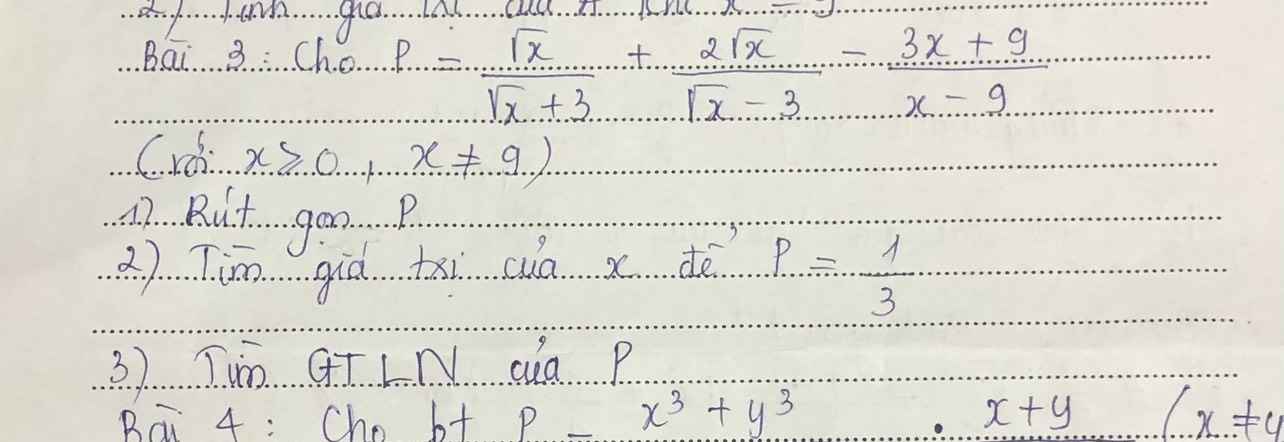 2) Tính giá trị của A khi x = 9
Bài 3 : Cho P = √x/(√x + 3) + 2√x/(√x - 3) - (3x + 9)/(x - 9)
(với x ≥ 0, x ≠ 9)
1) Rút gọn P
2) Tìm giá trị của x để P = 1/3
3) Tìm GTLN của P
Bài 4 : Cho bt P = x³ + y³ . x + y (x ≠ y